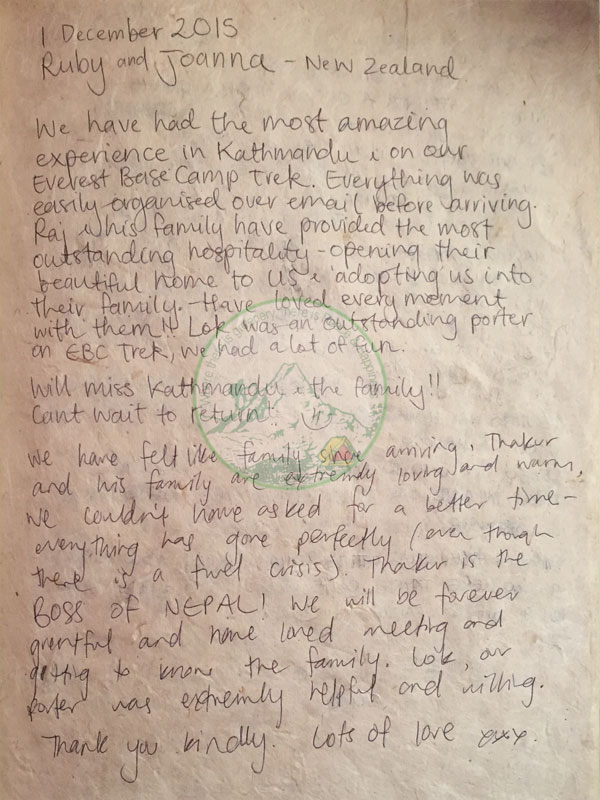 1 December 2015
Ruby and Joanna - New Zealand
We have had the most amazing
experience in Kathmandu & on our
Everest Base Camp Trek. Everything was
easily organised over email before arriving.
Raj & his family have provided the most
outstanding hospitality - opening their
beautiful home to us & adopting us into
their family. Have loved every moment
with them!! Lok was an outstanding porter
on EBC Trek, we had a lot of fun.
Will miss Kathmandu & the family!!
Cant wait to return!
We have felt like family since arriving. Thakur
and his family are extremely loving and warm,
we couldn't have asked for a better time -
everything has gone perfectly (even though
there is a fuel crisis). Thakur is the
BOSS OF NEPAL! We will be forever
grateful and have loved meeting and
getting to know the family. Lok, our
porter was extremely helpful and willing.
Thank you kindly. Lots of love xxxx.